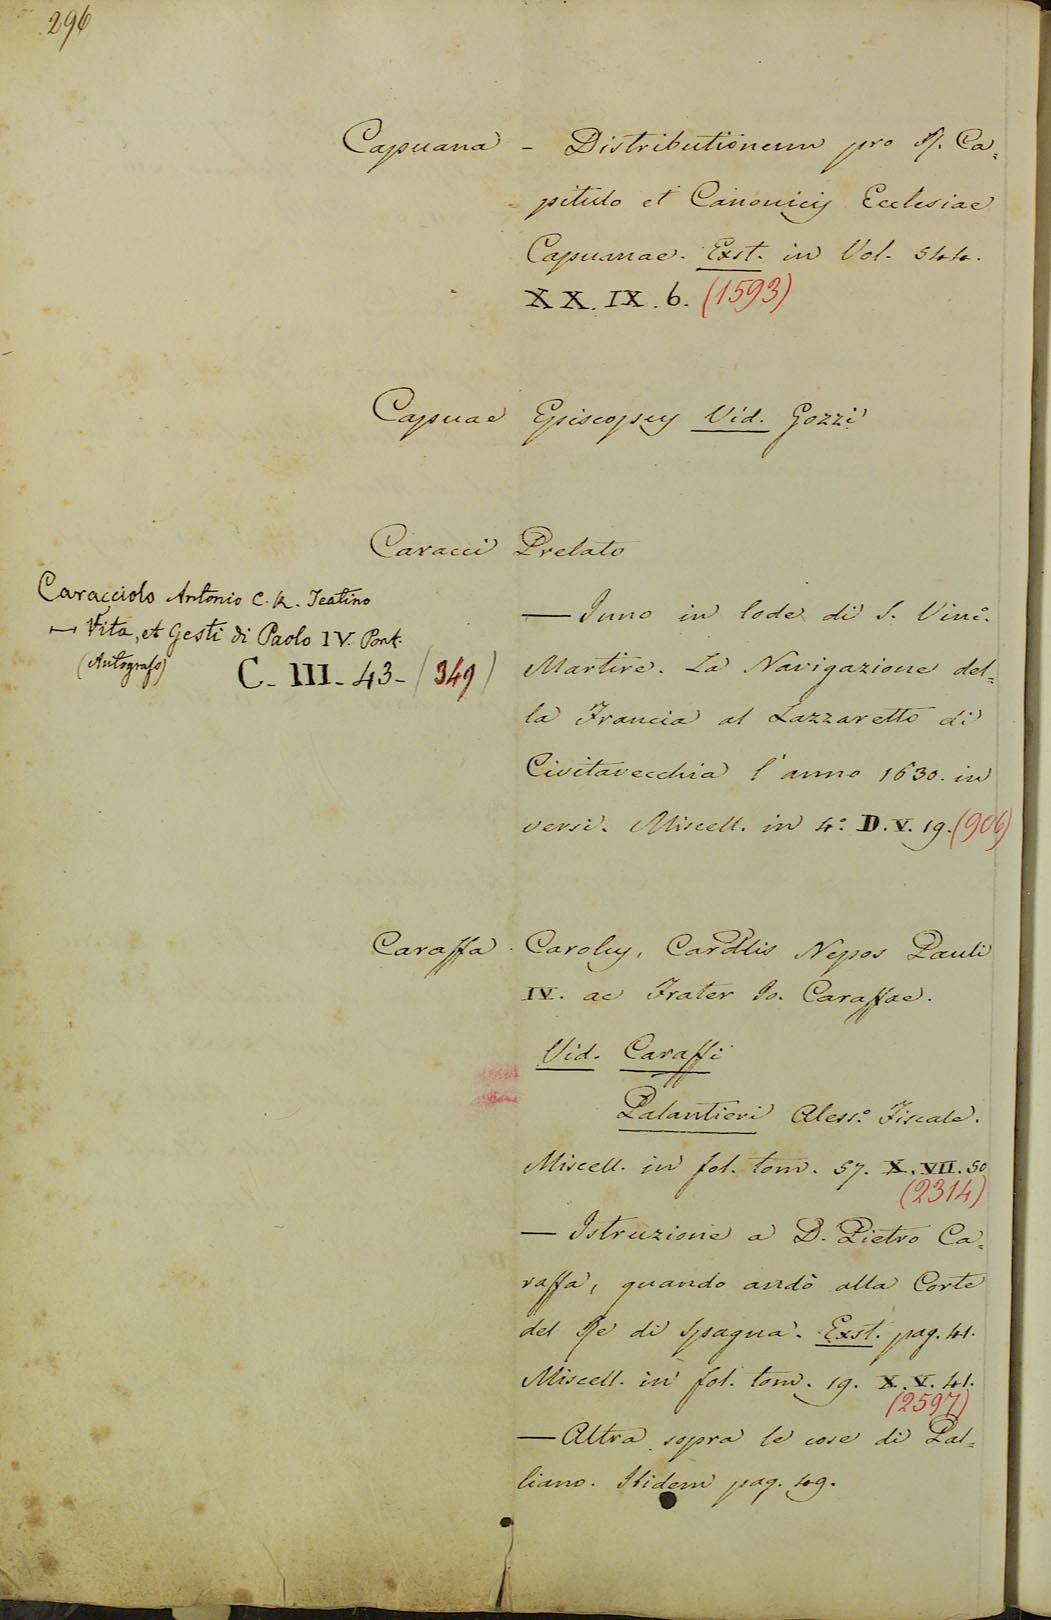 296
Capuana - Distributionum pro R. Ca=
pitulo et Canonicis Ecclesiae
Capuanae. Exst. in Vol. 544.
XX. IX. 6. (1593)
Capuae Episcopus Vid. Gozzi
Caracci Prelato
Caracciolo Antonio C. R. Teatino
— Vita, et Gesti di Paolo IV. Pont.
(Autografo)
C. III. 43 - (349)
— Inno in lode di S. Vinc.
Martire. La Navigazione del=
la Francia al Lazzaretto di
Civitavecchia l'anno 1630. in
versi. Miscell. in 4.° D. V. 19. (906)
Caraffa Carolus, Cardlis Nepos Pauli
IV. ac Frater Jo. Caraffae.
Vid. Caraffi
Palantieri Aless.° Fiscale.
Miscell. in fol. tom. 57. X. VII. 50
(2314)
— Istruzione a D. Pietro Ca=
raffa, quando andò alla Corte
del Re di Spagna. Exst. pag. 41.
Miscell. in fol. tom. 19. X. V. 41.
(2597)
— Altra sopra le cose di Pal=
liano. Ibidem pag. 49.